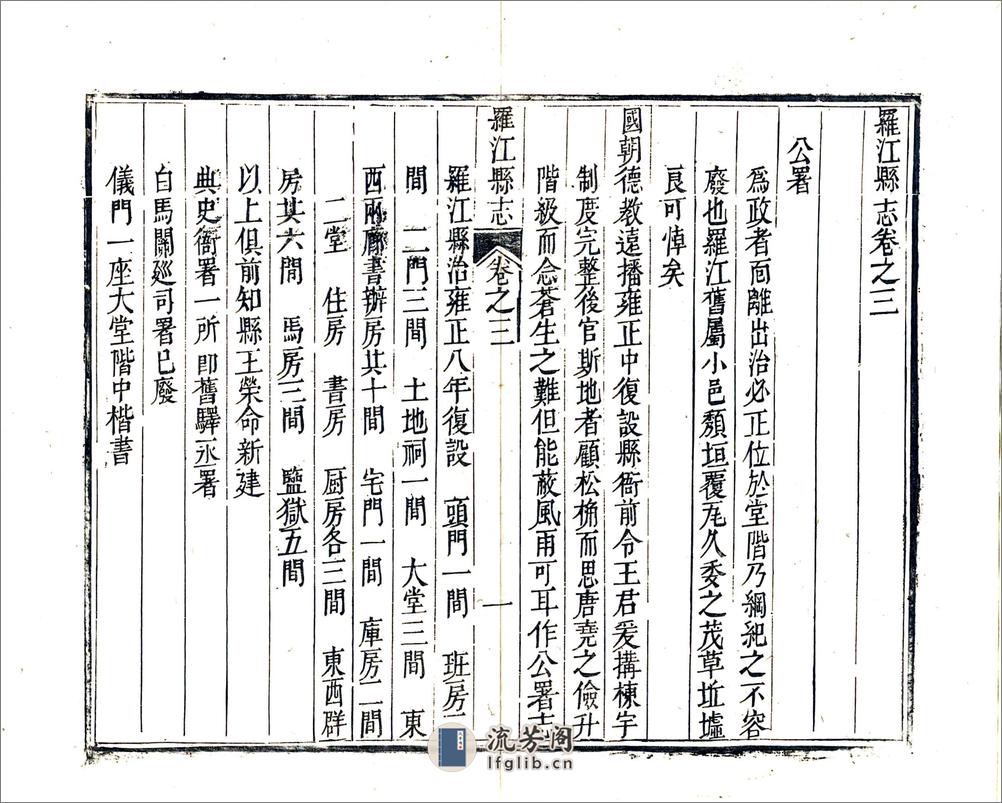 羅江縣志卷之三
公署
為政者面離出治必正位於堂階乃綱紀之不容
廢也羅江舊屬小邑頹垣覆瓦久委之茂草坵墟
良可悼矣
國朝德教遠播雍正中復設縣衙前令王君爰搆棟宇
制度完整後官斯地者顧松桷而思唐堯之儉升
階級而念蒼生之難但能蔽風雨可耳作公署志
羅江縣志 卷之三 一
羅江縣治雍正八年復設 頭門一間 班房
間 二門三間 土地祠一間 大堂三間 東
西兩廊書辦房共十間 宅門一間 庫房二間
二堂 住房 書房 厨房各三間 東西群
房共六間 馬房三間 監獄五間
以上俱前知縣王榮命新建
典史衙署一所即舊驛丞署
白馬關廵司署已廢
儀門一座大堂階中楷書
流芳阁
lfglib.cn